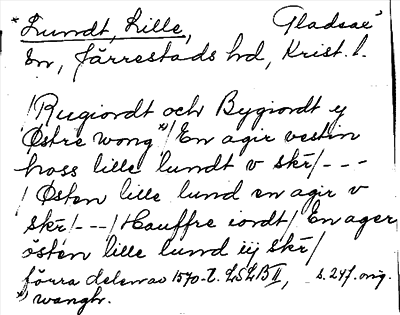 *Lundt, Lille, Gladsax
sn, Järrestads hd, Krist. l.
/Rugiordt och Bygiordt ij
Østre wong*/ En agir vestin
hoss lille lundt v skr/ - - -
/ Østen lille lund en agir v
skr/ - - / Hauffre iordt/ En ager
östen lille lund iij skr/
förra delen av 1570-t. LSLB II, s. 247. orig.
*) wangh.